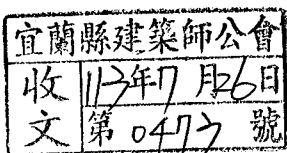 宜蘭縣建築師公會
收文 113年7月26日
第0473號